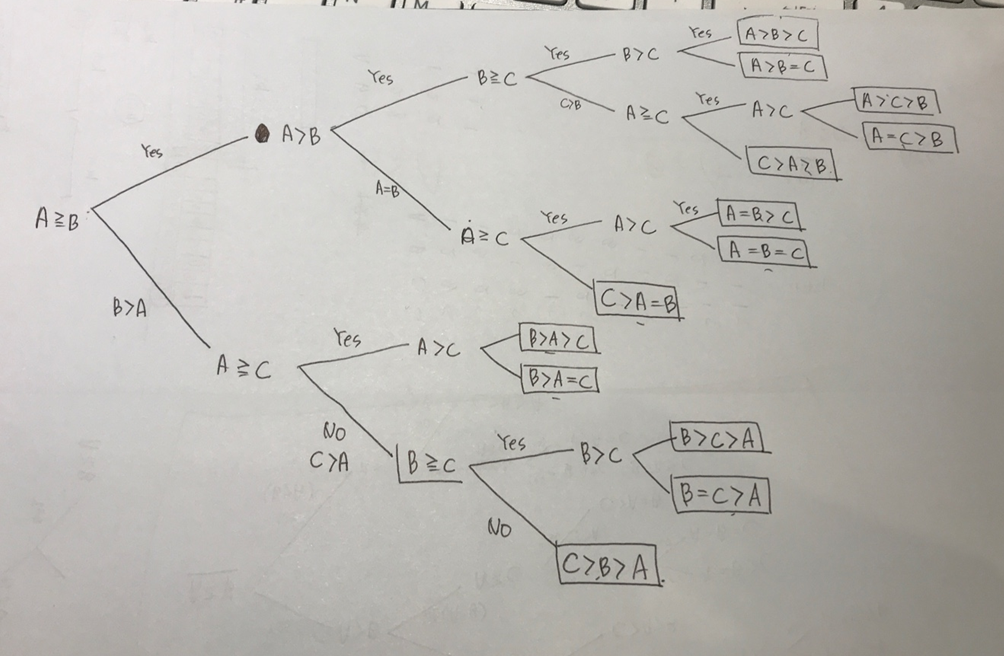 A≧B
Yes
A>B
Yes
B≧C
Yes
B>C
Yes
A>B>C
A>B=C
C>B
A≧C
Yes
A>C
A>C>B
A=C>B
C>A≧B.
A=B
A≧C
Yes
A>C
Yes
A=B>C
A=B=C
C>A=B
B>A
A≧C
Yes
A>C
B>A>C
B>A=C
NO
C>A
B≧C
Yes
B>C
B>C>A
B=C>A
NO
C>B>A.